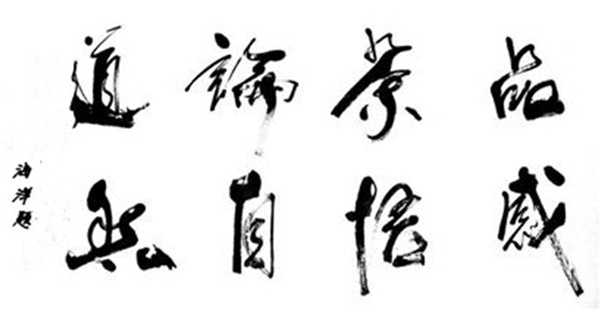 品茶論道
感悟自然
海洋題